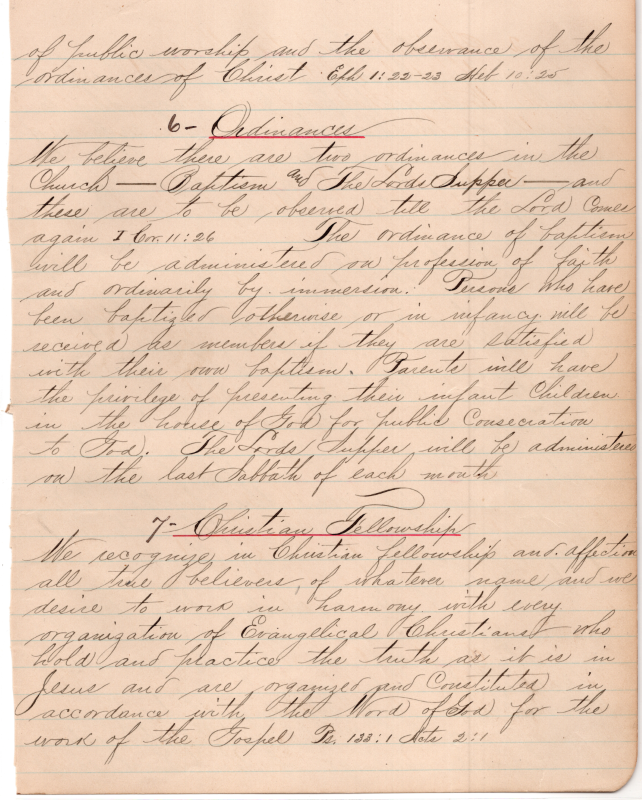 of public worship and the observance of the
ordinances of Christ Eph 1:22-23 Heb 10:25
6- Ordinances
We believe there are two ordinances in the
Church — Baptism and The Lords Supper — and
these are to be observed till the Lord Comes
again I Cor. 11:26 The ordinance of baptism
will be administered on profession of faith
and ordinarily by immersion. Persons who have
been baptized otherwise or in infancy will be
received as members if they are satisfied
with their own baptism. Parents will have
the privilege of presenting their infant Children
in the house of God for public Consecration
to God. The Lords Supper will be administered
on the last Sabbath of each month
7- Christian Fellowship
We recognize in Christian fellowship and affection
all true believers, of whatever name and we
desire to work in harmony with every
organization of Evangelical Christians who
hold and practice the truth as it is in
Jesus and are organized and Constituted in
accordance with the Word of God for the
work of the Gospel Ps. 133:1 Acts 2:1